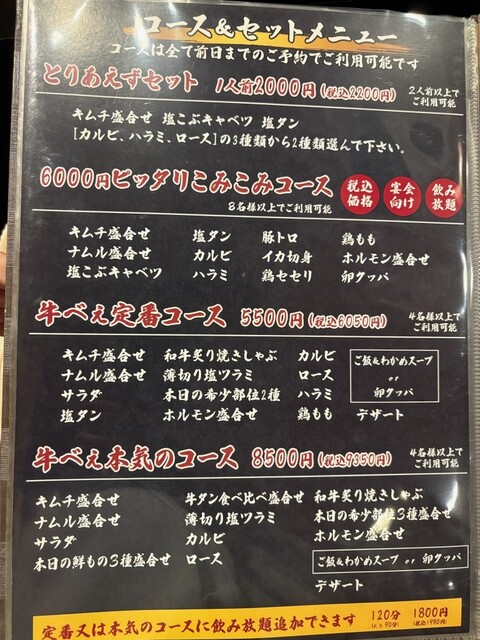 コース&セットメニュー
コースは全て前日までのご予約でご利用可能です
とりあえずセット 1人前2000円(税込2200円) 2人前以上でご利用可能
キムチ盛合せ 塩こぶキャベツ 塩タン
[カルビ、ハラミ、ロース]の3種類から2種類選んで下さい。
6000円ピッタリこみこみコース 税込価格 宴会向け 飲み放題
8名様以上でご利用可能
キムチ盛合せ 塩タン 豚トロ 鶏もも
ナムル盛合せ カルビ イカ切身 ホルモン盛合せ
塩こぶキャベツ ハラミ 鶏セセリ 卵クッパ
牛べぇ定番コース 5500円(税込6050円) 4名様以上でご利用可能
キムチ盛合せ 和牛炙り焼きしゃぶ カルビ ご飯&わかめスープ
ナムル盛合せ 薄切り塩ツラミ ロース or
サラダ 本日の希少部位2種 ハラミ 卵クッパ
塩タン ホルモン盛合せ 鶏もも デザート
牛べぇ本気のコース 8500円(税込9350円) 4名様以上でご利用可能
キムチ盛合せ 牛タン食べ比べ盛合せ 和牛炙り焼きしゃぶ
ナムル盛合せ 薄切り塩ツラミ 本日の希少部位3種盛合せ
サラダ カルビ ホルモン盛合せ
本日の鮮もの3種盛合せ ロース ご飯&わかめスープ or 卵クッパ
デザート
定番又は本気のコースに飲み放題追加できます 120分 1800円
(L.o 90分) (税込1980円)